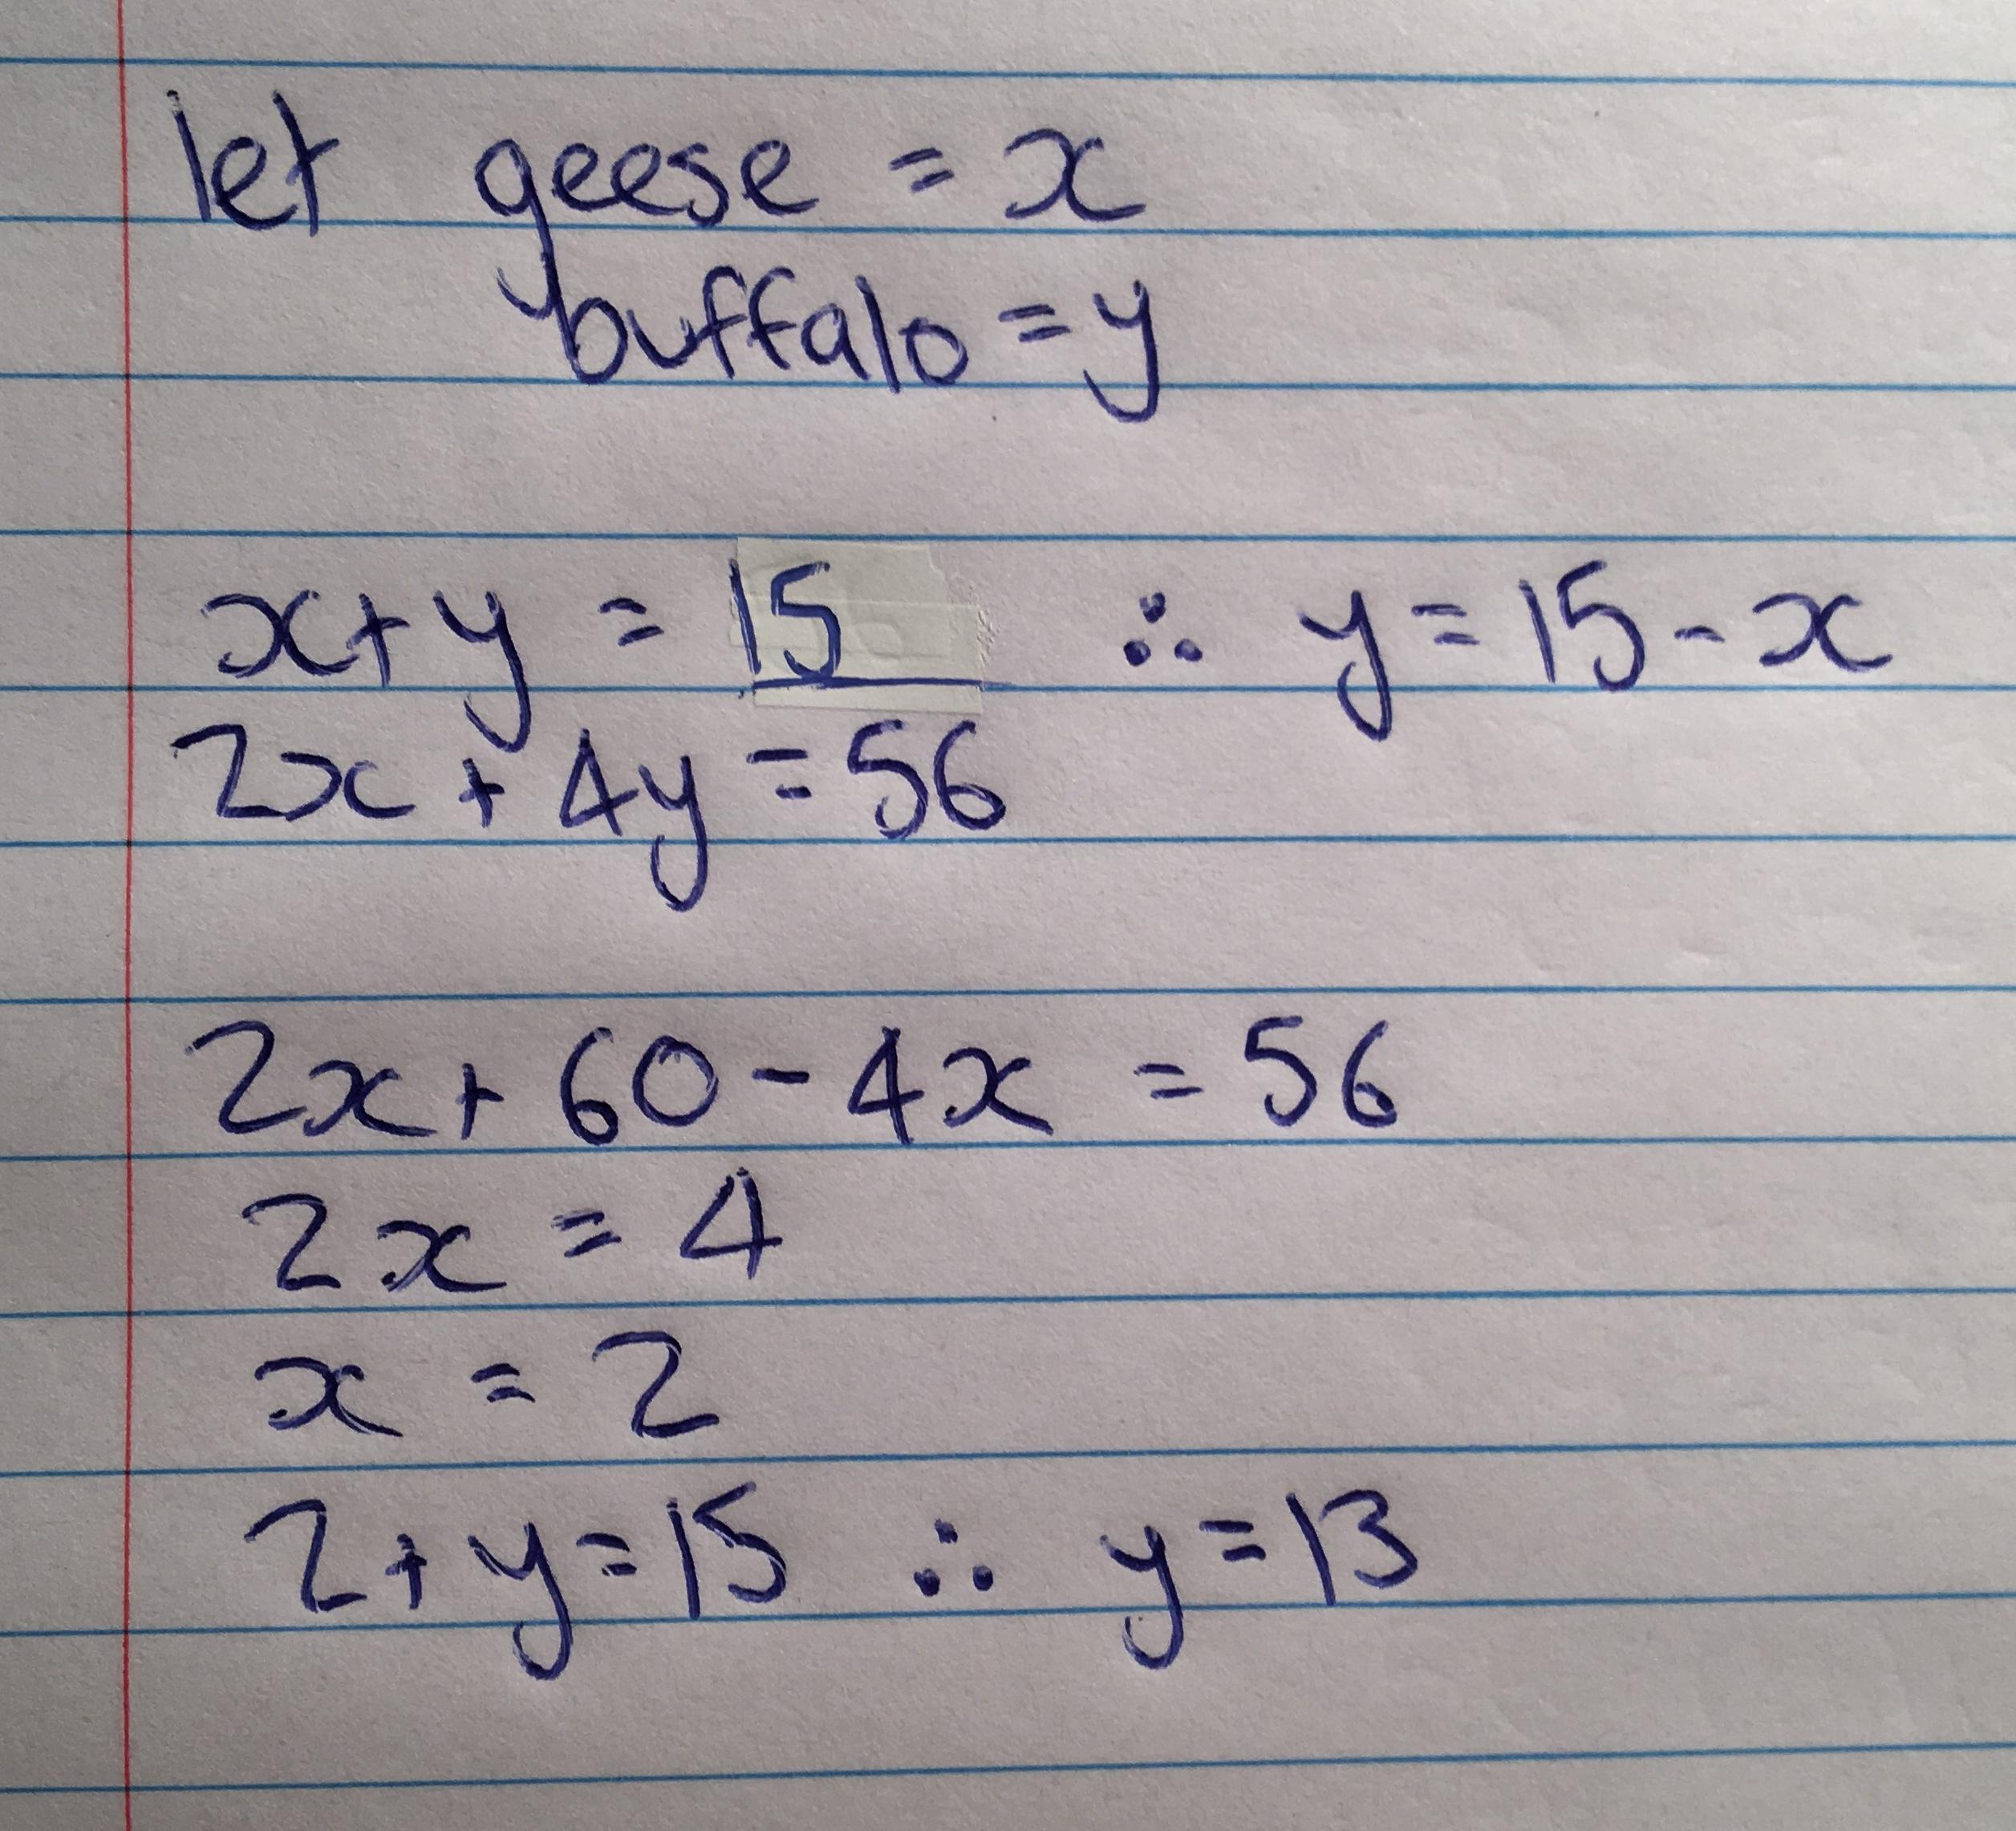 let geese = x
buffalo = y
x + y = 15 ∴ y = 15 - x
2x + 4y = 56
2x + 60 - 4x = 56
2x = 4
x = 2
2 + y = 15 ∴ y = 13